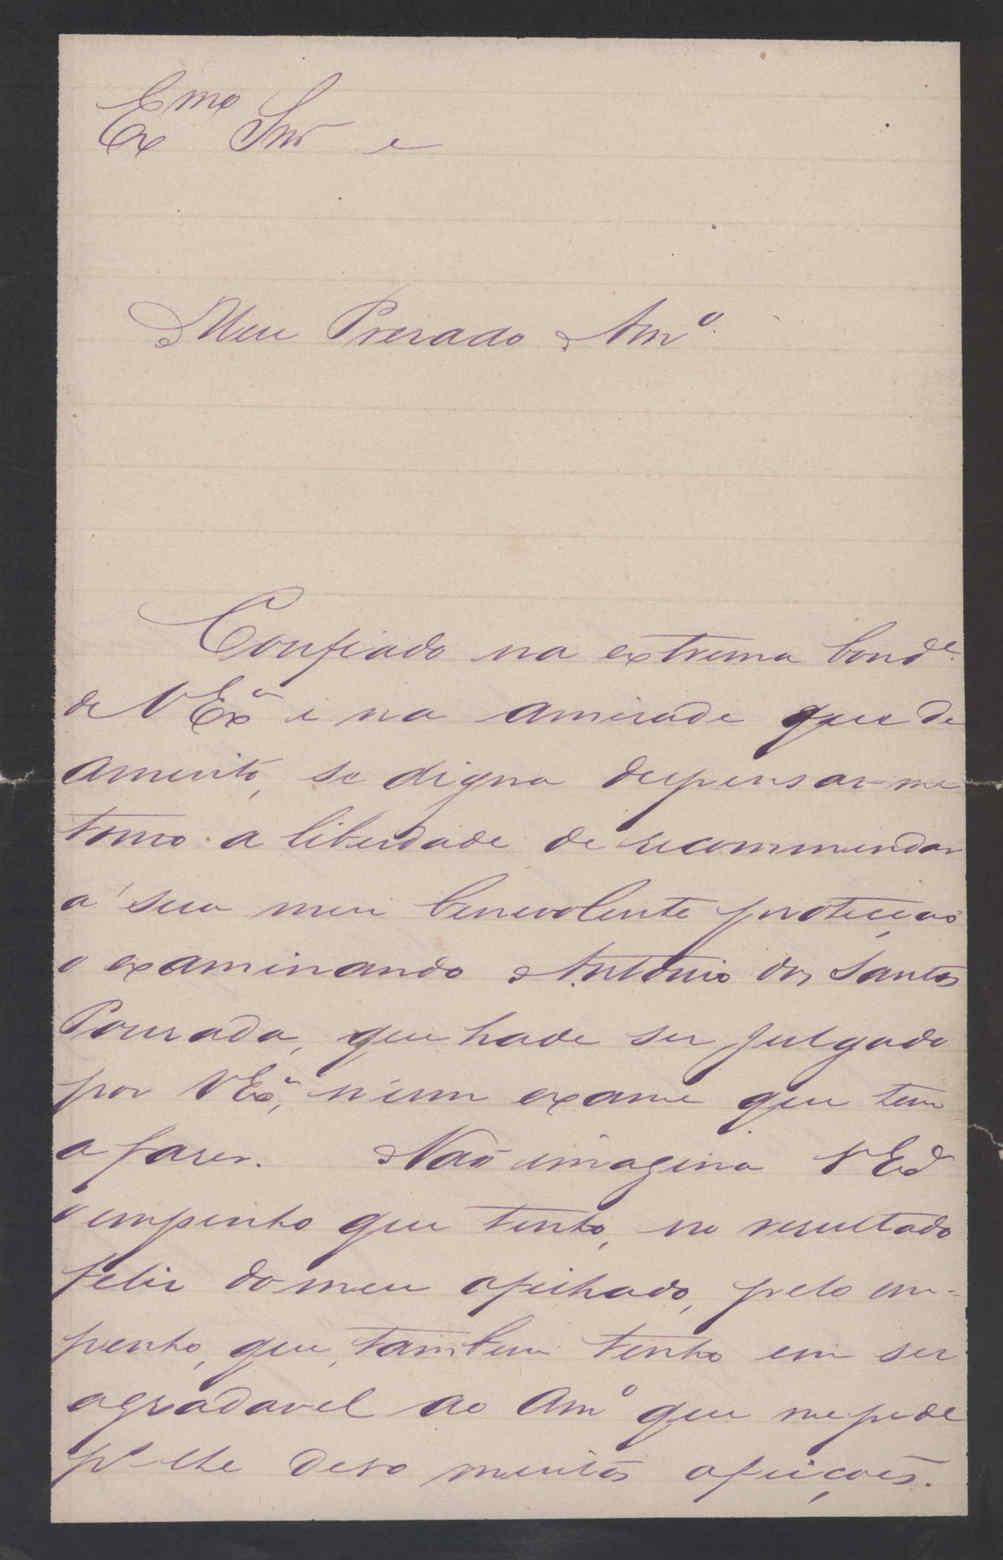 Ex.mo Snr e
Meu Presado Amº.
Confiado na extrema bond.e
de V Exª e na amisade que de
amuito, se digna despensar-me
tomo a liberdade de recommendar
a sua benevolente proteição
o examinando Antonio dos Santos
que hade ser julgado
por V Exª, n'um exame que tem
a faser. Não imagina V Exª
o empenho que tenho, no resultado
felis do meu afilhado, pelo em-
penho, que, tambem tenho em ser
agradavel ao Amº que me pede
pr lhe dever muitas afeições.